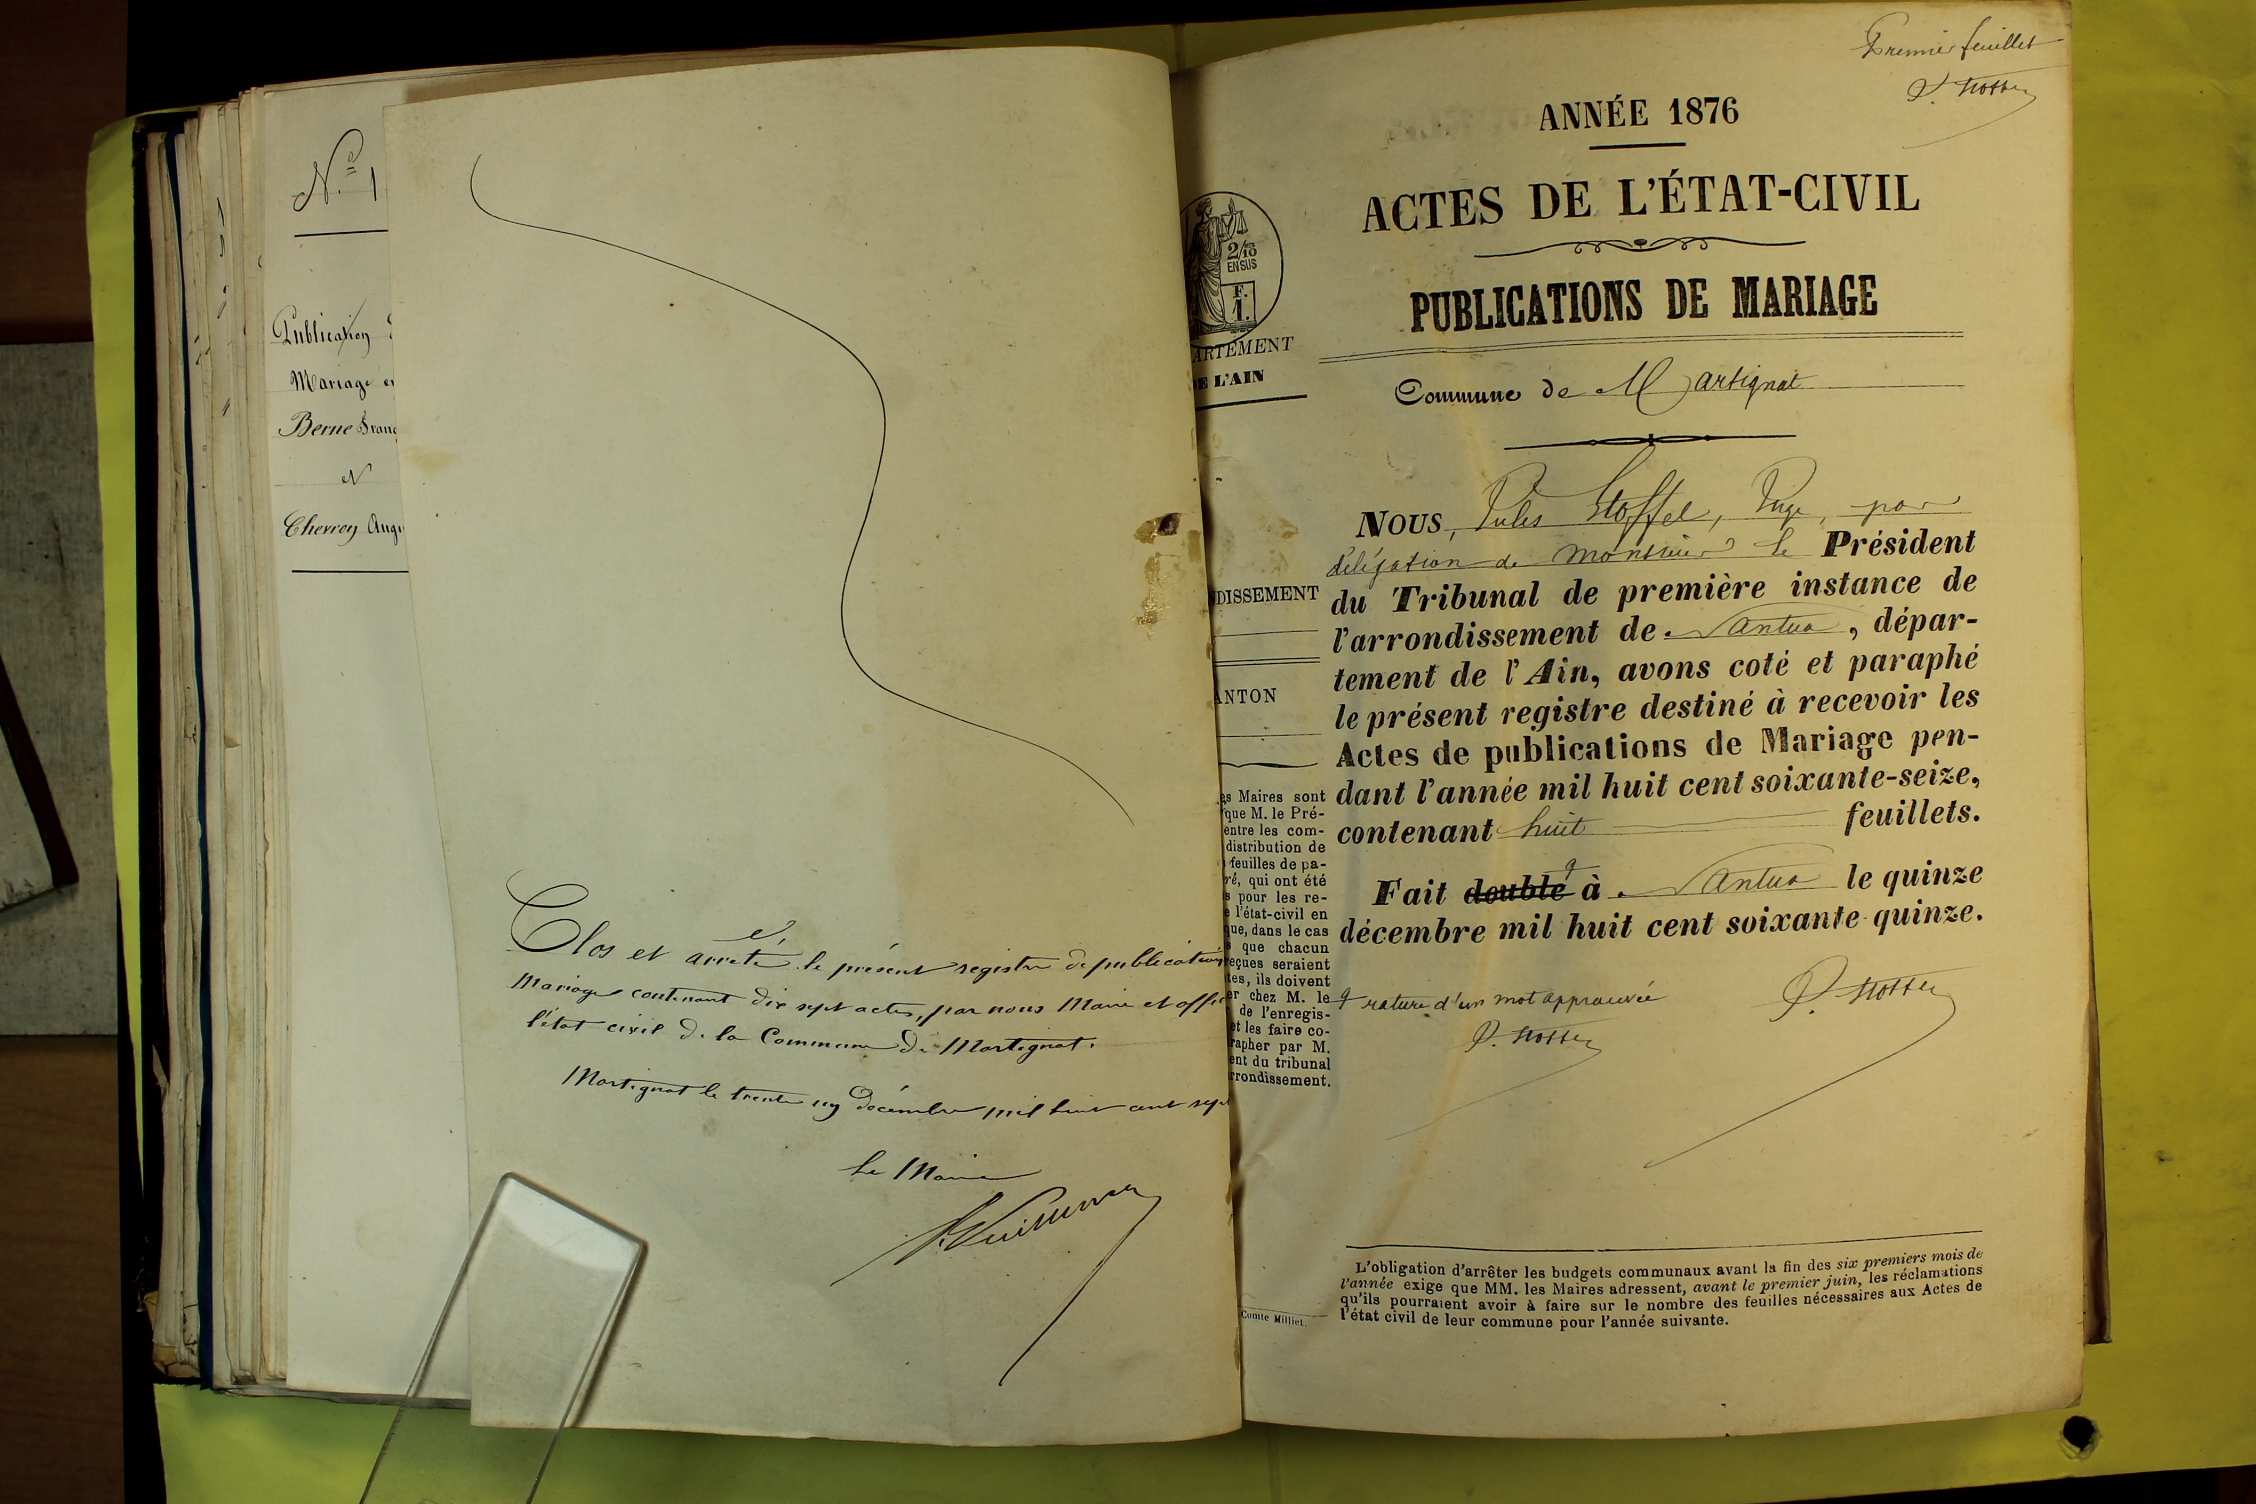 N.º 1
Publication
Mariage
Berne Franç
Chevron Aug
Clos et arrêté le présent registre de publication
Mariage contenant dix sept actes, par nous Maire et offic
l'état civil de la Commune de Martignat.
Martignat le trente un décembre mil huit cent sep
Le Maire
Premier feuillet
ANNÉE 1876
ACTES DE L'ÉTAT-CIVIL
PUBLICATIONS DE MARIAGE
2/10
EN SUS
F.
1.
ARTEMENT
DE L'AIN
Commune de Martignat
NOUS, Jules Stoffel, Juge, par
délégation de monsieur le Président
du Tribunal de première instance de
l'arrondissement de Nantua, dépar-
tement de l'Ain, avons coté et paraphé
le présent registre destiné à recevoir les
Actes de publications de Mariage pen-
dant l'année mil huit cent soixante-seize,
contenant huit feuillets.
Fait double à Nantua le quinze
décembre mil huit cent soixante-quinze.
rature d'un mot approuvée
DISSEMENT
ANTON
es Maires sont
que M. le Pré-
entre les com-
distribution de
feuilles de pa-
ré, qui ont été
s pour les re-
e l'état-civil en
que, dans le cas
que chacun
reçues seraient
tes, ils doivent
er chez M. le
de l'enregis-
et les faire co-
rapher par M.
ent du tribunal
rrondissement.
Comte Milliet.
L'obligation d'arrêter les budgets communaux avant la fin des six premiers mois de
l'année exige que MM. les Maires adressent, avant le premier juin, les réclamations
qu'ils pourraient avoir à faire sur le nombre des feuilles nécessaires aux Actes de
l'état civil de leur commune pour l'année suivante.